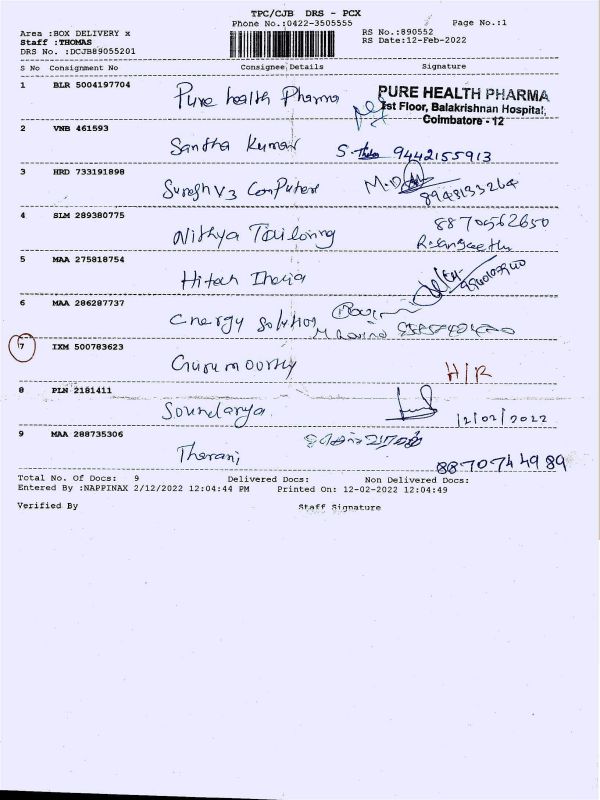 TPC/CJB DRS - PCX
Phone No.:0422-3505555 Page No.:1
Area :BOX DELIVERY x RS No.:890552
Staff :THOMAS RS Date:12-Feb-2022
DRS No. :DCJB89055201
S No Consignment No Consignee Details Signature
1 BLR 5004197704 Pure health Pharma PURE HEALTH PHARMA
1st Floor, Balakrishnan Hospital,
Coimbatore - 12
2 VNB 461593 Santha Kumar 9442155913
3 HRD 733191898 Suresh V3 Computers
4 SLM 289380775 Nithya Tailoring 8870562650
5 MAA 275818754 Hitech
6 MAA 286287737 Energy Solution
7 IXM 500783623 Gurumoorthy H/R
8 PLN 2181411 Soundarya 12/02/2022
9 MAA 288735306 Tharani 8870744989
Total No. Of Docs: 9 Delivered Docs: Non Delivered Docs:
Entered By :NAPPINAX 2/12/2022 12:04:44 PM Printed On: 12-02-2022 12:04:49
Verified By Staff Signature